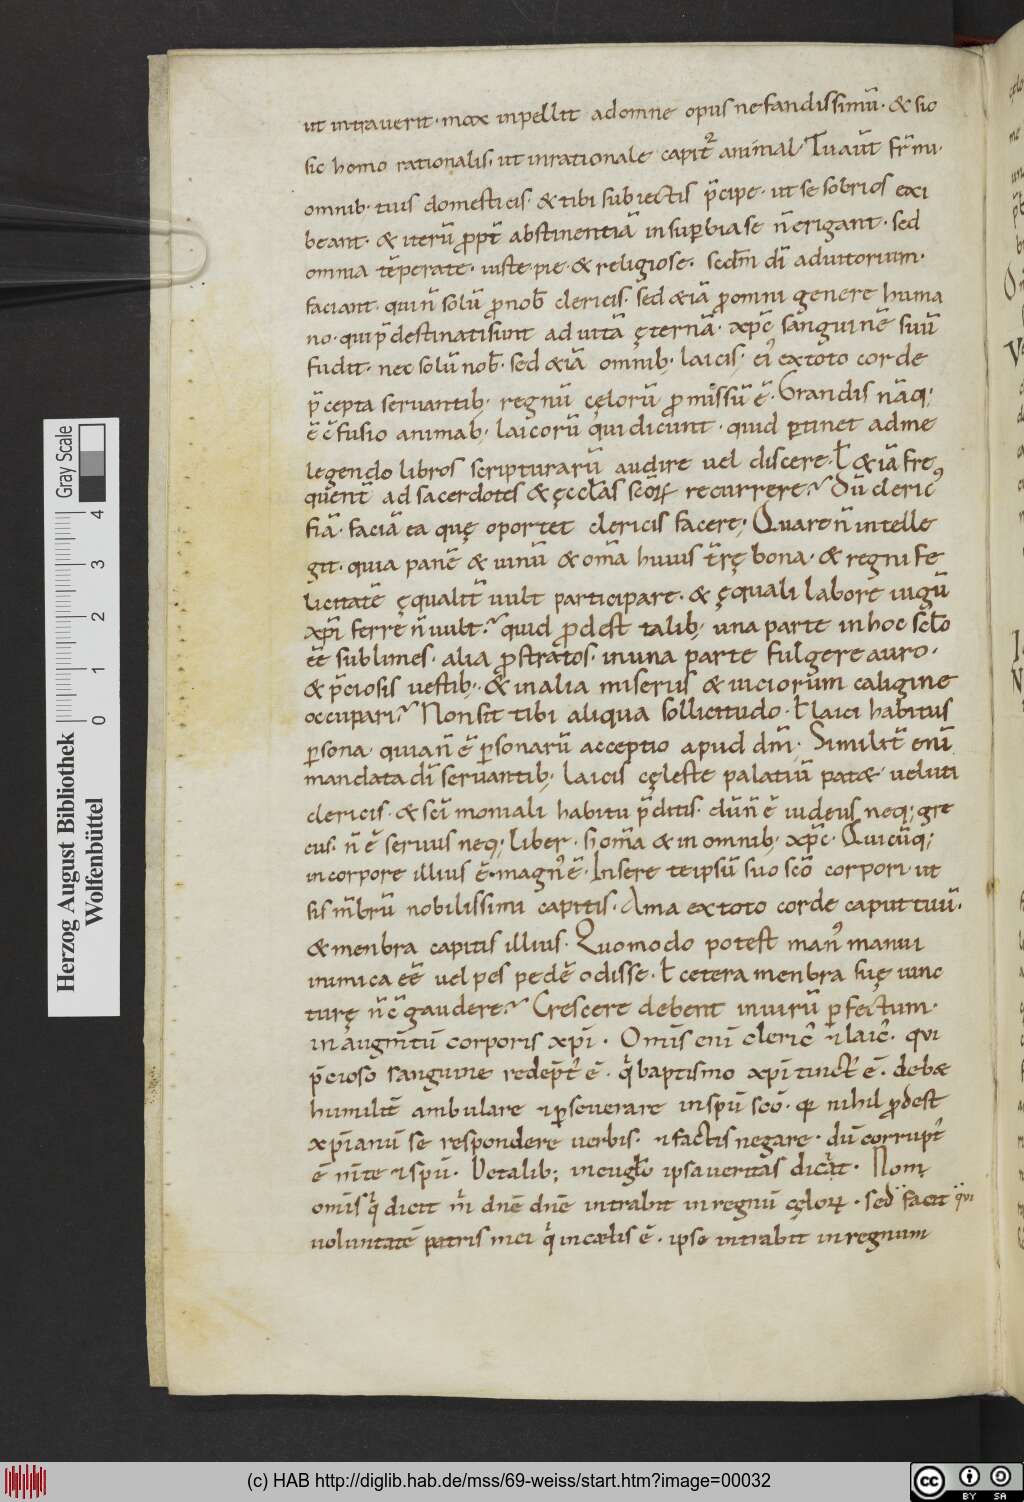 ut intrauerit · mox inpellit ad omne opus nefandissimū · & sic
sic homo rationalis · ut inrationale capit᷒ animal · Tu aūt fr̄ mi ·
omnib · tuis domesticis · & tibi subiectis p̄cipe · ut se sobrios exi
beant · & iterū ꝓpt̄ abstinentiā in suꝑbia se n̄ erigant · sed
omnia tēperate · iuste pie & religiose · scdm̄ dī adiutorium ·
faciant · qui n̄ solū ꝓ nob̄ clericis · sed & iā ꝓ omni genere huma
no · qui p̄destinati sunt ad uitā ęternā · xp̄c sanguinē suū
fudit · nec solū nob̄ · sed & iā omnib; laicis · ei᷒ ex toto corde
p̄cepta seruantib; regnū cęlorū ꝓmissū ē · Grandis nāq;
ē c̄fusio animab; laicorū qui dicunt · quid ꝑtinet ad me
legendo libros scripturarū audire uel discere · ł & iā fre
quent̄ ad sacerdotes & ęccłas scōꝝ recurrere? Dū cleric᷒
fiā · faciā ea quę oportet clericis facere; Quare n̄ intelle
git · quia panē & uinū & om̄a huius t̄rę bona · & regni fe
licitatē ęqualit̄ uult participare · & ęquali labore iugū
xp̄i ferre n̄ uult? quid ꝓdest talib; una parte in hoc scło
eē sublimes · alia ꝓstratos · in una parte fulgere auro ·
& p̄ciosis uestib; · & in alia miserius & uiciorum caligine
occupari? Non sit tibi aliqua sollicitudo · ł laici habitus
ꝑsona · quia n̄ ē ꝑsonarū acceptio apud dm̄ · Similit̄ enī
mandata dī seruantib; laicis cęleste palatiū patæ · ueluti
clericis · & scī moniali habitu p̄ditis · dū n̄ ē iudeus neq; gre
cus · n̄ ē seruus neq; liber · S; om̄a & in omnib; xp̄c · Quicūq;
in corpore illius ē · magn᷒ ē · Insere te ipsū suo scō corpori · ut
sis mēbrū nobilissimi capitis · Ama ex toto corde caput tuū ·
& menbra capitis illius · Quomodo potest man᷒ manui
inimica eē uel pes pedē odisse · ł cetera menbra suę iunc
turę n̄ c̄gaudere? Crescere debent in uirū ꝑfectum ·
in augm̄tū corporis xp̄i · Omīs enī cleric᷒ ⁊ laic᷒ · qui
p̄cioso sanguine redēpt᷒ ē · q̇ baptismo xp̄i tinct᷒ ē · debæ
humilit̄ ambulare ⁊ ꝑseuerare in spū scō · qꝛ nihil ꝓdest
xp̄ianū se respondere uerbis · ⁊ factis negare · dū corrupt᷒
ē m̄te ⁊ spū · De talib; in eug̅lo ipsa ueritas dicit · Non
omīs q̇ dicit ṁ dnē dnē intrabit in regnū cęloꝝ · sed facit qui
voluntatē patris mei q̇ in cælis ē · ipse intrabit in regnum
Herzog August Bibliothek
Wolfenbüttel
0 1 2 3 4
Gray Scale
(c) HAB http://diglib.hab.de/mss/69-weiss/start.htm?image=00032
cc BY SA